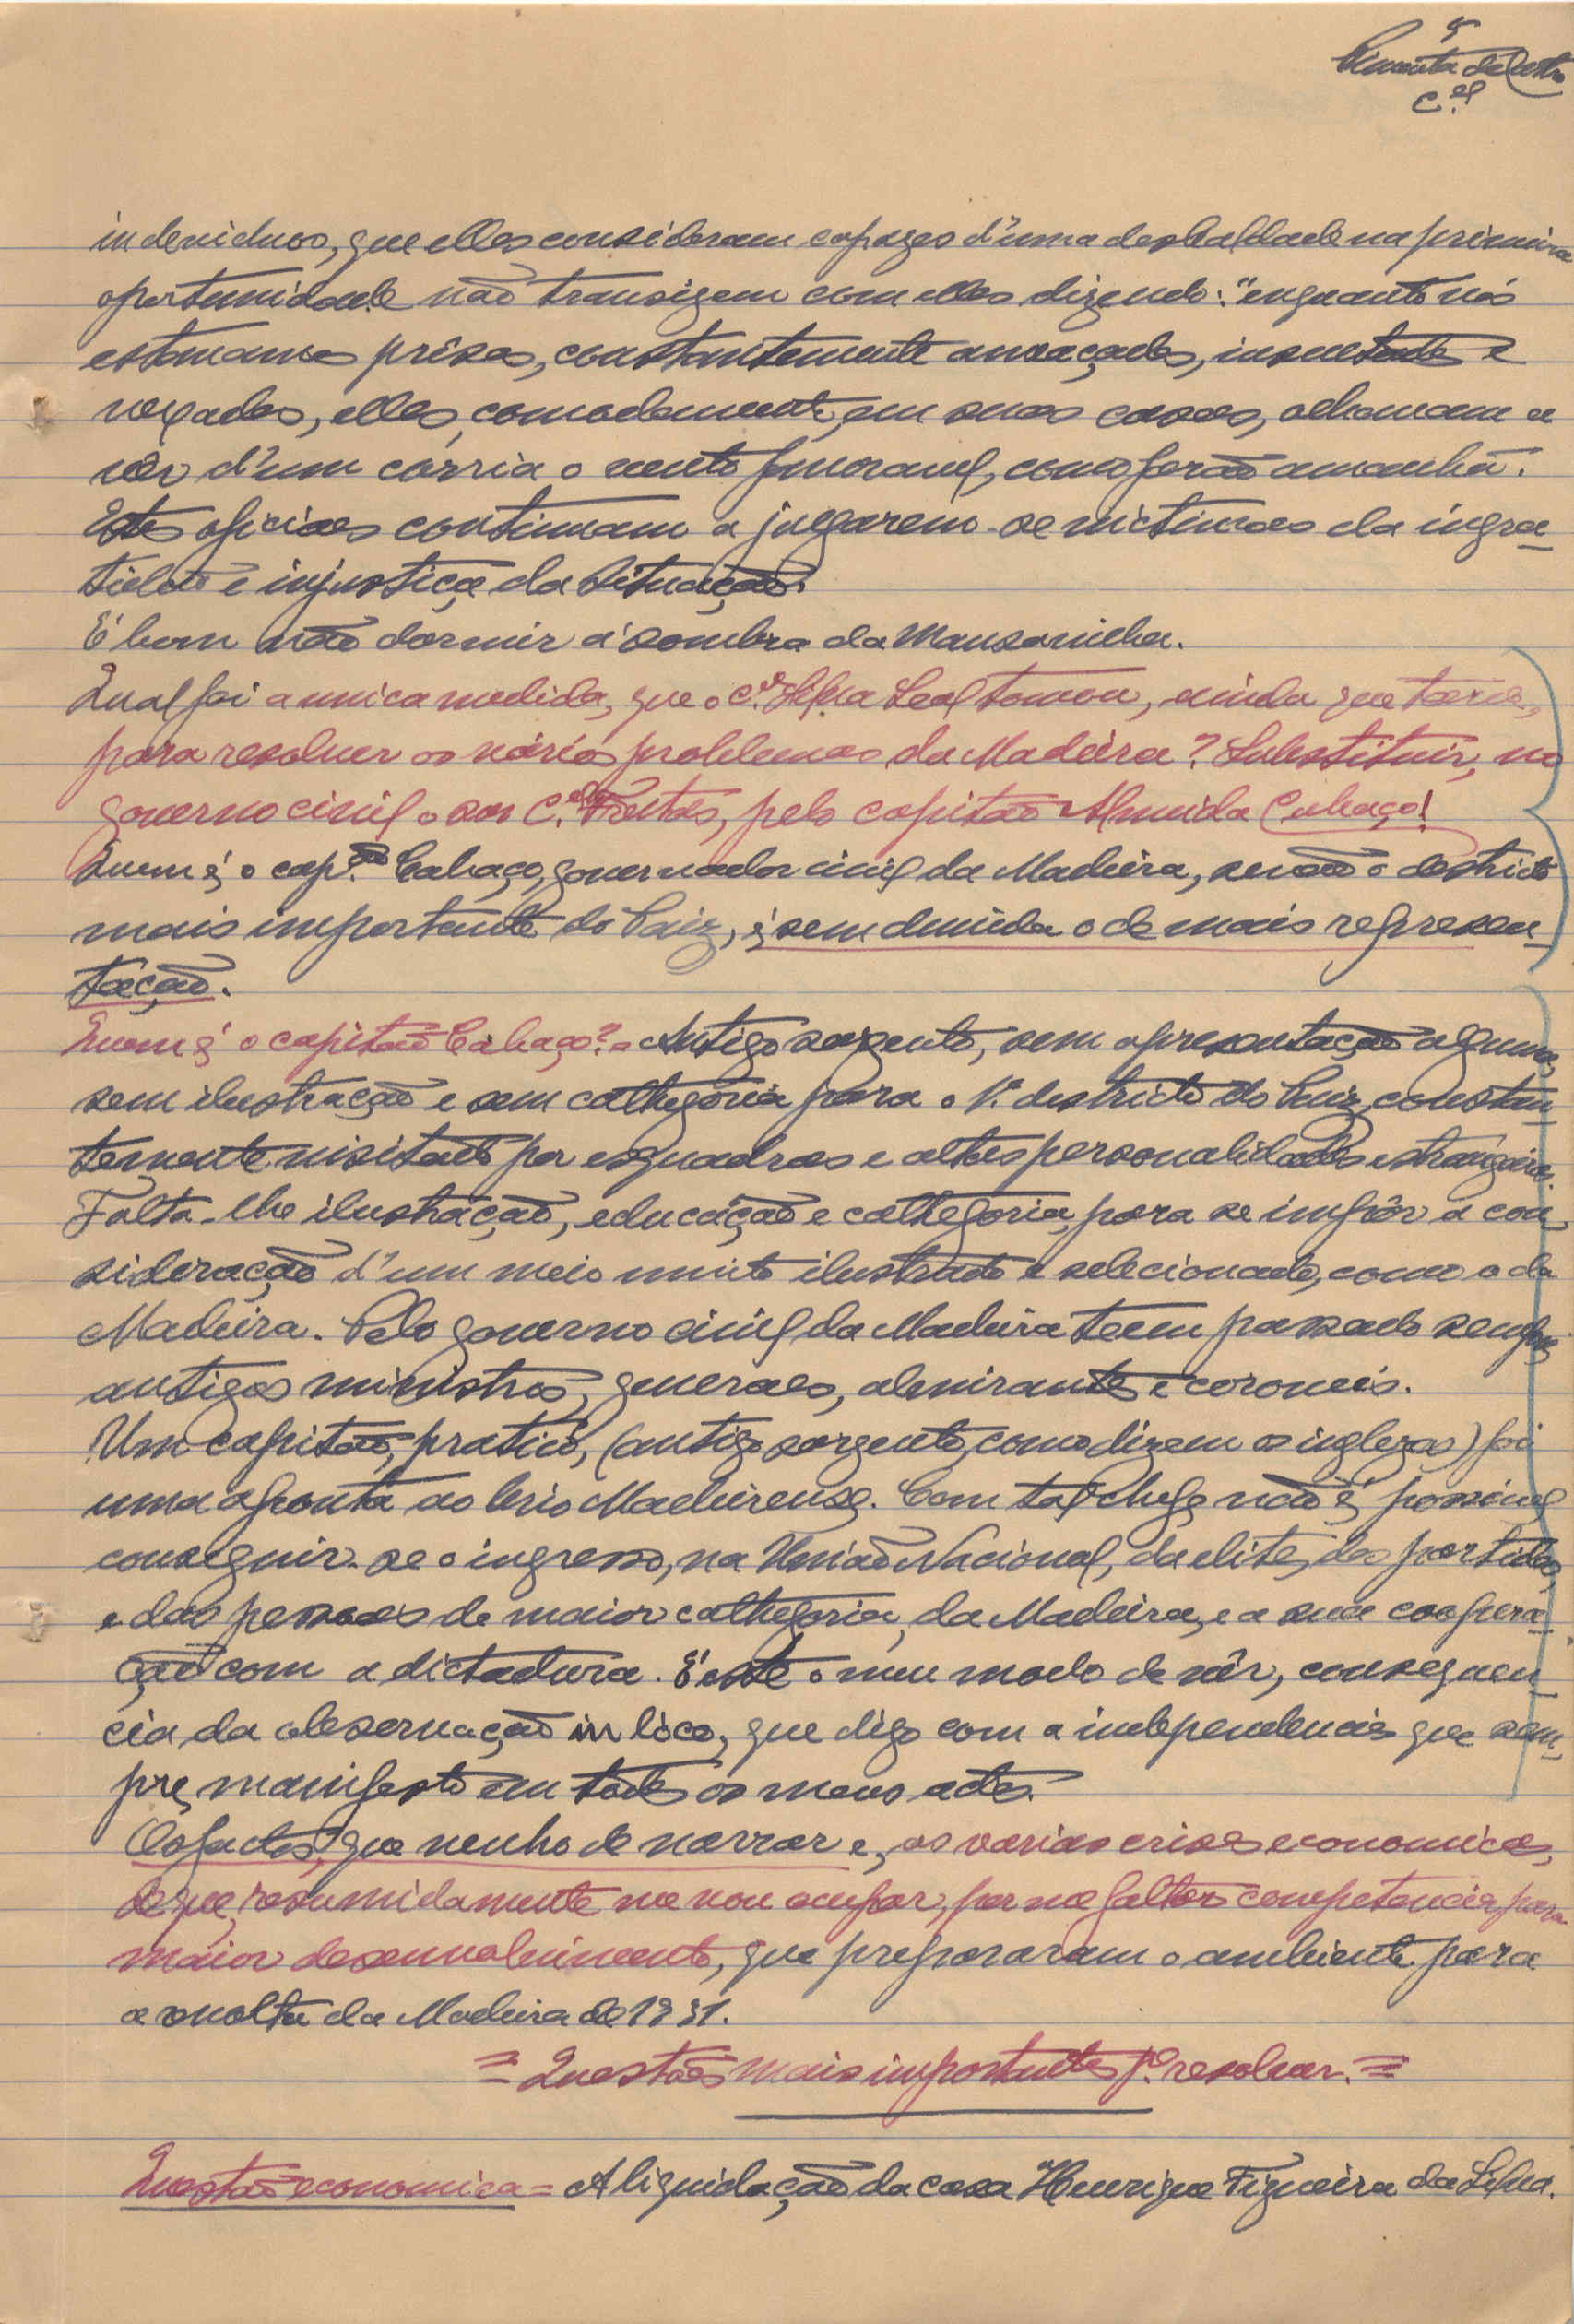 5
Pimenta de Castro
C.el
individuos, que elles consideram capazes d'uma deslealdade na primeira
oportunidade não transigem com elles dizendo: "enquanto nós
estavamos prêsos, constantemente ameaçados, insultados e
vexados, elles, comodamente, em suas casas, olhavam a
vêr d'um corria o vento favoravel, como farão amanhã.
Estes oficiaes continuam a julgarem-se victimas da ingra-
tidão e injustiça da Situação.
É bom não dormir á sombra da Mansanilha.
Qual foi a unica medida, que o C.el Silva Leal tomou, ainda que tarde,
para resolver os vários problemas da Madeira? Substituir, no
governo civil o snr C.el Freitas, pelo capitão Almeida Cabaço!
Quem é o cap.ão Cabaço, governador civil da Madeira, senão o destricto
mais importante do Paiz, é sem duvida o de mais represen-
tação.
Quem é o capitão Cabaço? = Antigo sargento, sem apresentação alguma,
sem ilustração e sem cathegoria para o 1.º destricto do Paiz, constan-
temente visitado por esquadras e altas personalidades estrangeiras.
Falta-lhe ilustração, educação e cathegoria, para se impôr á con-
sideração d'um meio muito ilustrado e selecionado, como o da
Madeira. Pelo governo civil da Madeira teem passado sempre
antigos ministros, generaes, almirantes e coroneis.
Um capitão, pratico, (antigo sargento, como dizem os inglezes) foi
uma afronta ao brio Madeirense. Com tal chefe não é possivel
conseguir-se o ingresso, na União Nacional, da elite, dos partidos,
e das pessoas de maior cathegoria, da Madeira, e a sua coopera-
ção com a dictadura. É este o meu modo de vêr, consequen-
cia da observação in loco, que digo com a independencia que sem-
pre manifesto em todos os meus actos.
Os factos, que venho de narrar e, as varias crises economicas,
de que, resumidamente me vou ocupar, por me faltar competencia para
maior desenvolvimento, que prepararam o ambiente para
a revolta da Madeira de 1931.
= Questões mais importantes p.ª resolver. =
Questão economica = A liquidação da casa Henrique Figueira da Silva.